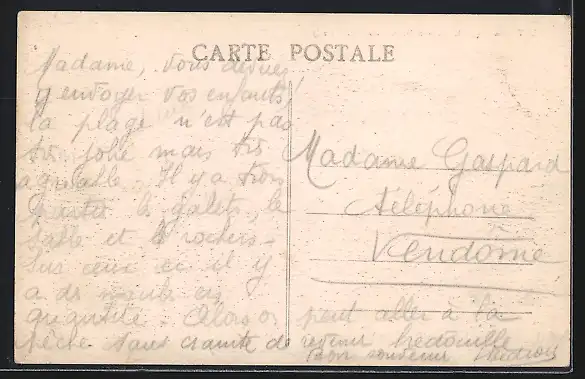 CARTE POSTALE
Madame, vous devriez
y envoyer vos enfants!
la plage n'est pas
très jolie mais très
agréable. Il y a trois
parties le galets, le
sable et le rochers -
Sur ceux ci il y
a des moules en
quantité. Alors on peut aller à la
pêche sans crainte de revenir bredouille
Bon souvenir
Madame Gaspard
téléphone
Vendôme